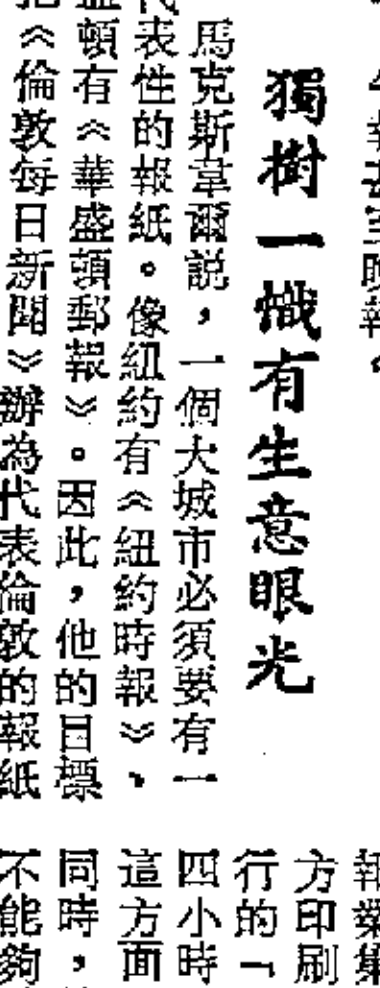 獨樹一幟有生意眼光
馬克斯韋爾説，一個大城市必須要有一
表性的報紙。像紐約有《紐約時報》、
頓有《華盛頓郵報》。因此，他的目標
《倫敦每日新聞》辦為代表倫敦的報紙
報業集
方印刷
行的「
四小時
這方面
同時，
不能夠